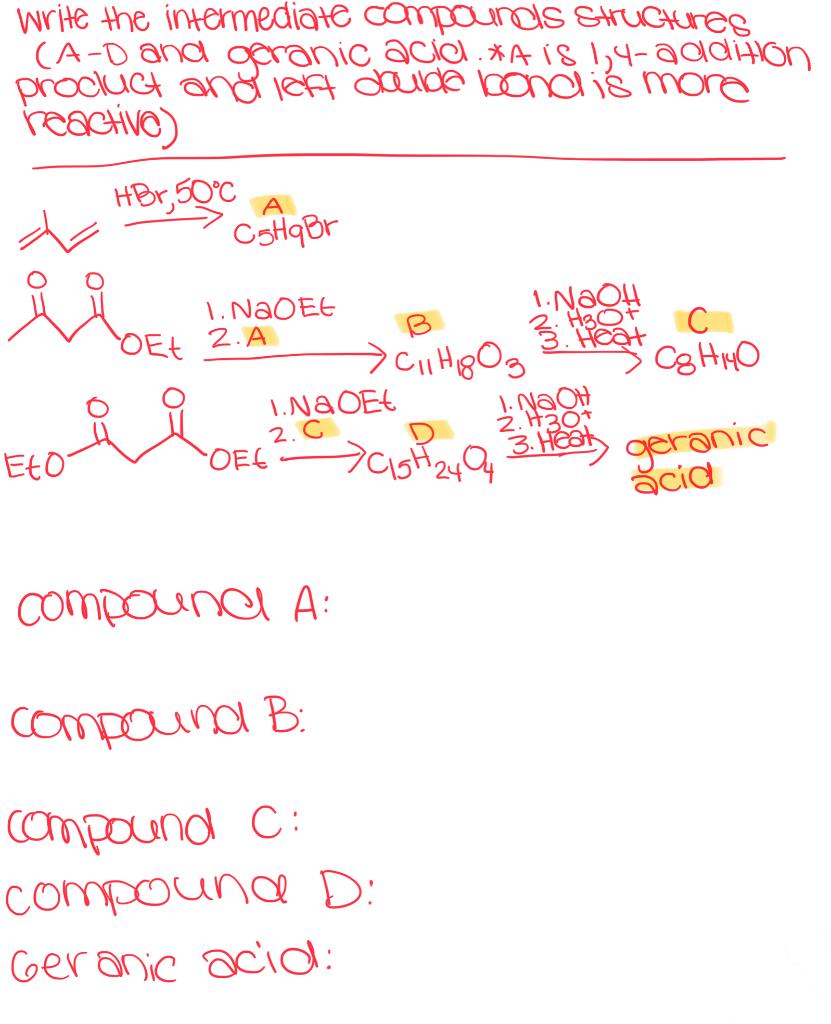 write the intermediate compounds structures
(A-D and geranic acid. *A is 1,4-addition
product and left double bond is more
reactive)
HBr, 50°C
A
C5H9Br
O O
OEt
1. NaOEt
2. A
B
C11H18O3
1. NaOH
2. H3O+
3. Heat
C
C8H14O
O O
EtO
OEt
1. NaOEt
2. C
D
C15H24O4
1. NaOH
2. H3O+
3. Heat
geranic
acid
compound A:
compound B:
compound C:
compound D:
Geranic acid: